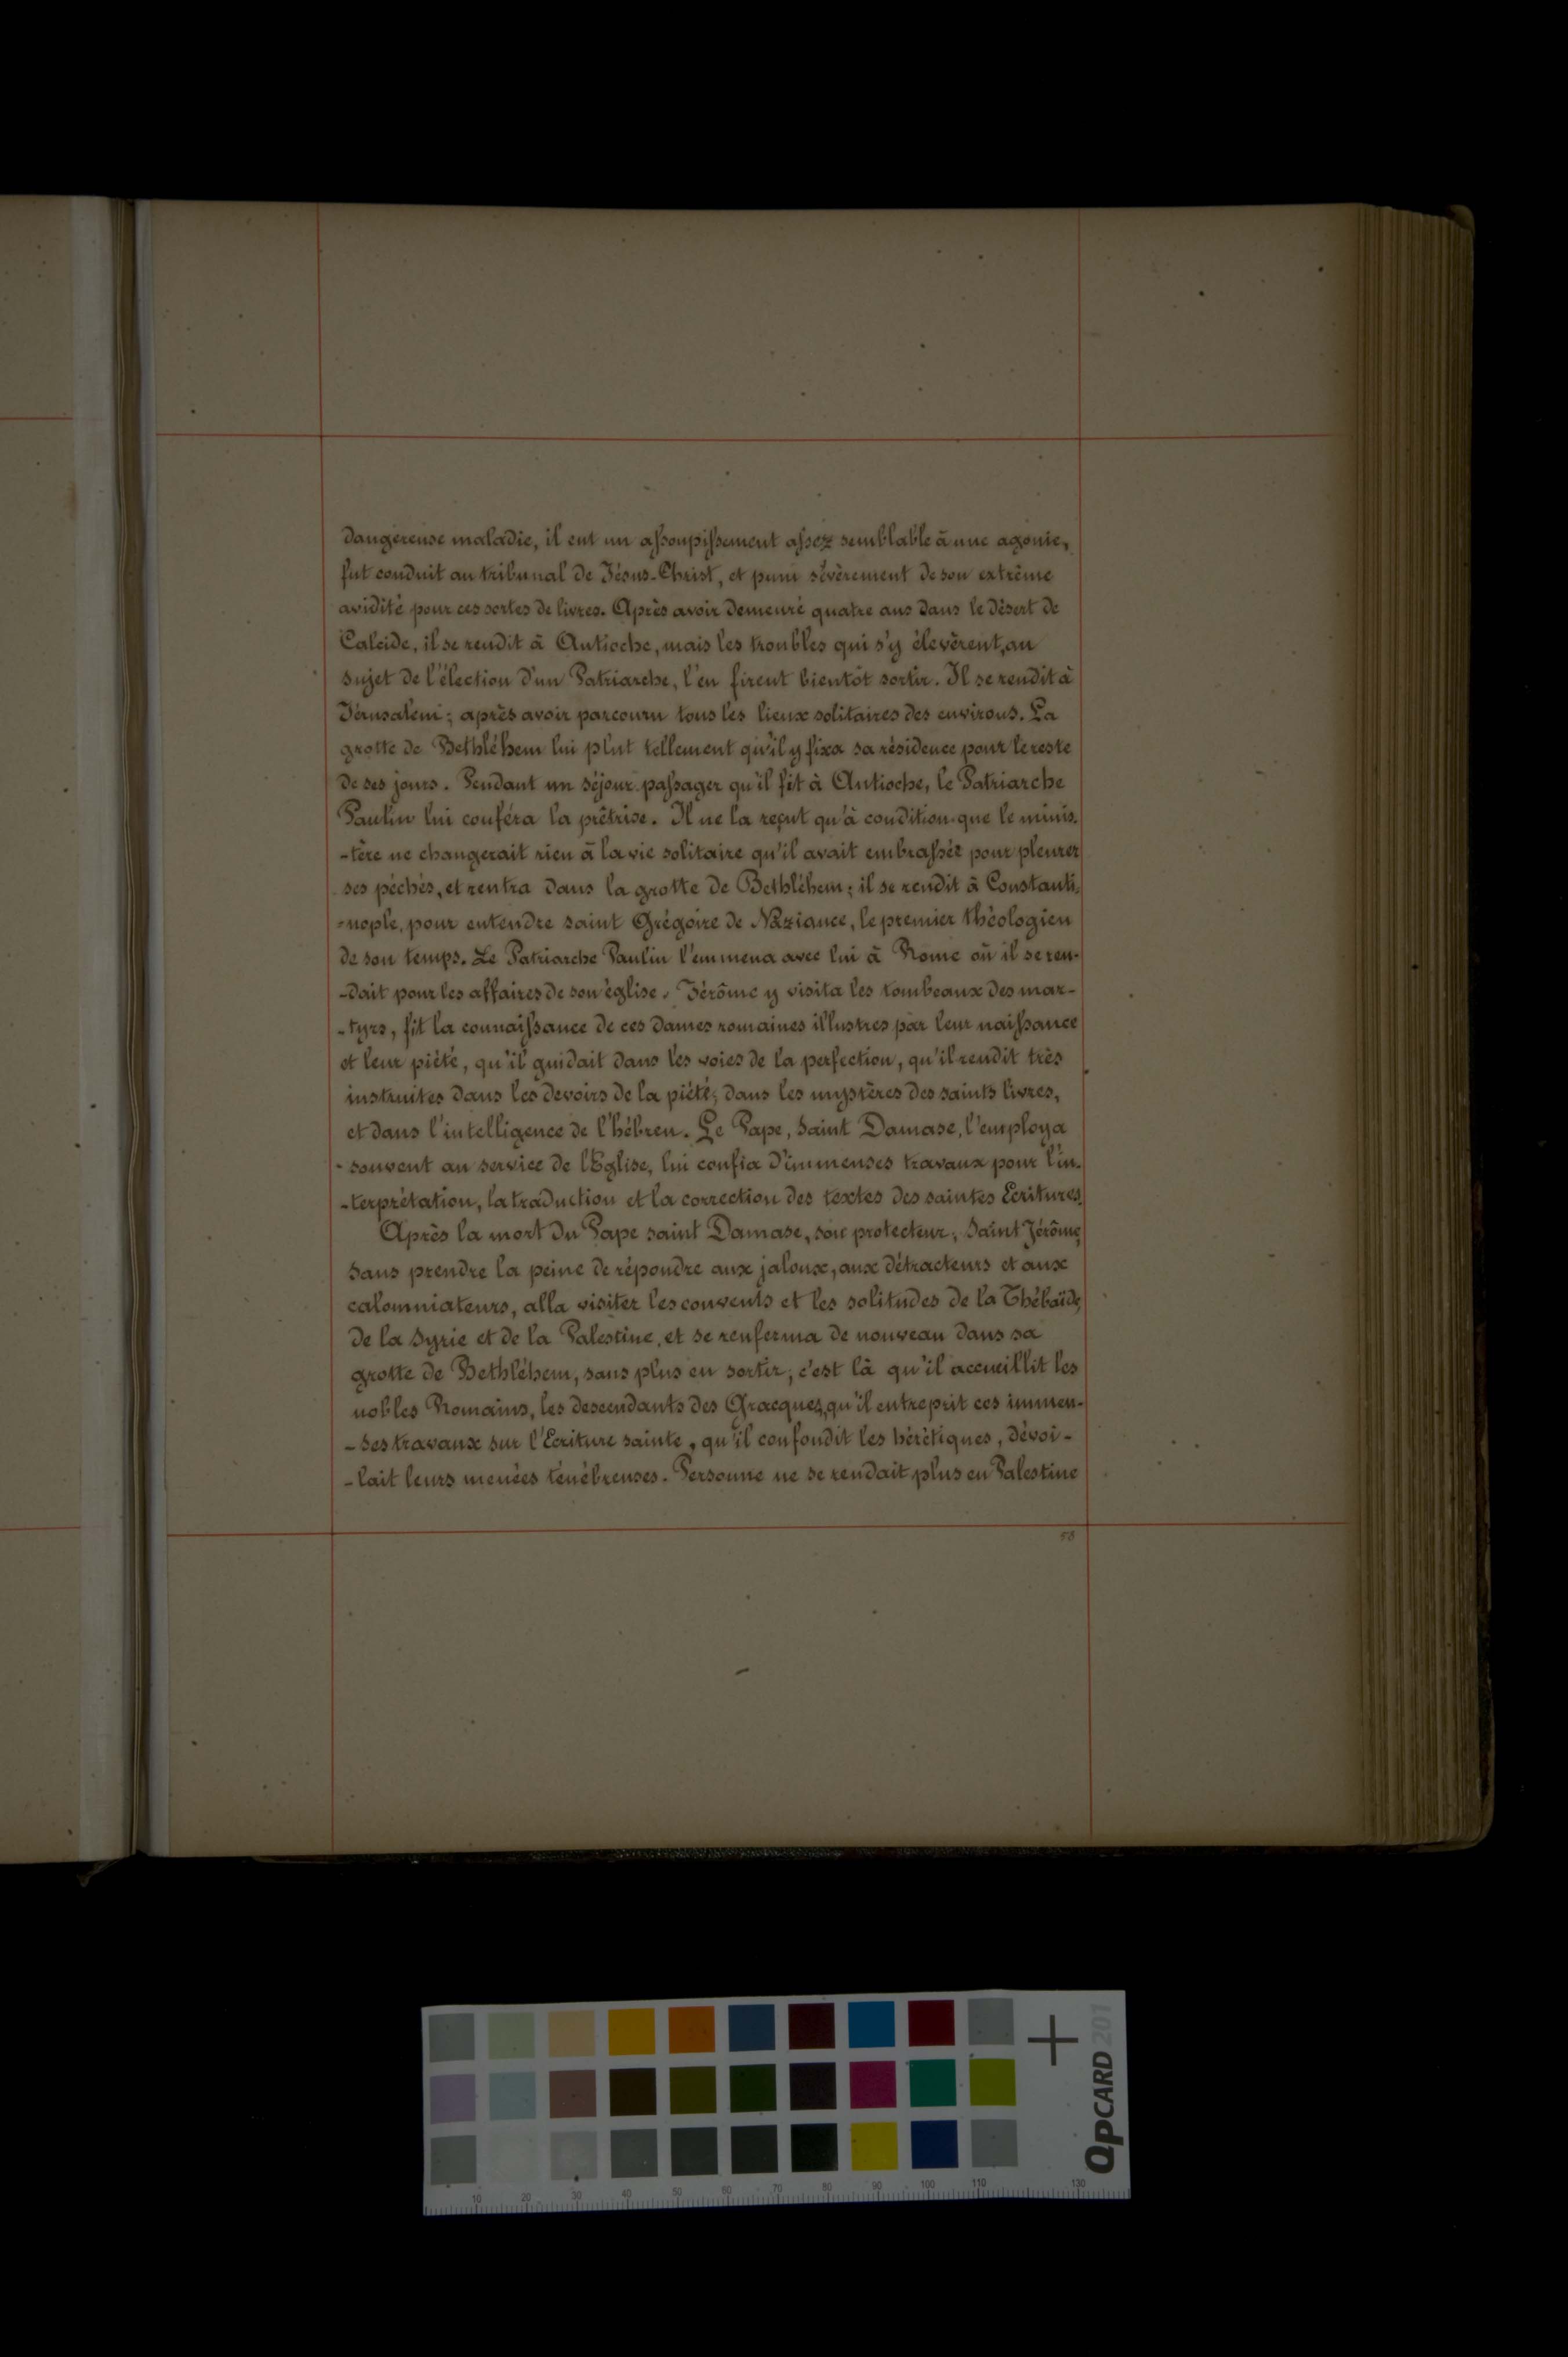 dangereuse maladie, il eut un assoupissement assez semblable à une agonie,
fut conduit au tribunal de Jésus-Christ, et puni sévèrement de son extrême
avidité pour ces sortes de livres. Après avoir demeuré quatre ans dans le désert de
Calcide, il se rendit à Antioche, mais les troubles qui s'y élevèrent, au
sujet de l'élection d'un Patriarche, l'en firent bientôt sortir. Il se rendit à
Jérusalem ; après avoir parcouru tous les lieux solitaires des environs. La
grotte de Bethléhem lui plut tellement qu'il y fixa sa résidence pour le reste
de ses jours. Pendant un séjour passager qu'il fit à Antioche, le Patriarche
Paulin lui conféra la prêtrise. Il ne la reçut qu'à condition que le minis-
-tère ne changerait rien à la vie solitaire qu'il avait embrassée pour pleurer
ses péchés, et rentra dans la grotte de Bethléhem ; il se rendit à Constanti-
-nople, pour entendre saint Grégoire de Naziance, le premier théologien
de son temps. Le Patriarche Paulin l'emmena avec lui à Rome où il se ren-
-dait pour les affaires de son église. Jérôme y visita les tombeaux des mar-
-tyrs, fit la connaissance de ces dames romaines illustres par leur naissance
et leur piété, qu'il guidait dans les voies de la perfection, qu'il rendit très
instruites dans les devoirs de la piété, dans les mystères des saints livres,
et dans l'intelligence de l'hébreu. Le Pape, Saint Damase, l'employa
souvent au service de l'Eglise, lui confia d'immenses travaux pour l'in-
-terprétation, la traduction et la correction des textes des saintes Ecritures.
Après la mort du Pape saint Damase, son protecteur, Saint Jérôme,
sans prendre la peine de répondre aux jaloux, aux détracteurs et aux
calomniateurs, alla visiter les couvents et les solitudes de la Thébaïde,
de la Syrie et de la Palestine, et se renferma de nouveau dans sa
grotte de Bethléhem, sans plus en sortir ; c'est là qu'il accueillit les
nobles Romains, les descendants des Gracques, qu'il entreprit ces immen-
-ses travaux sur l'Ecriture sainte, qu'il confondit les hérétiques, dévoi-
-lait leurs menées ténébreuses. Personne ne se rendait plus en Palestine
58
QPCARD 201
10 20 30 40 50 60 70 80 90 100 110 130